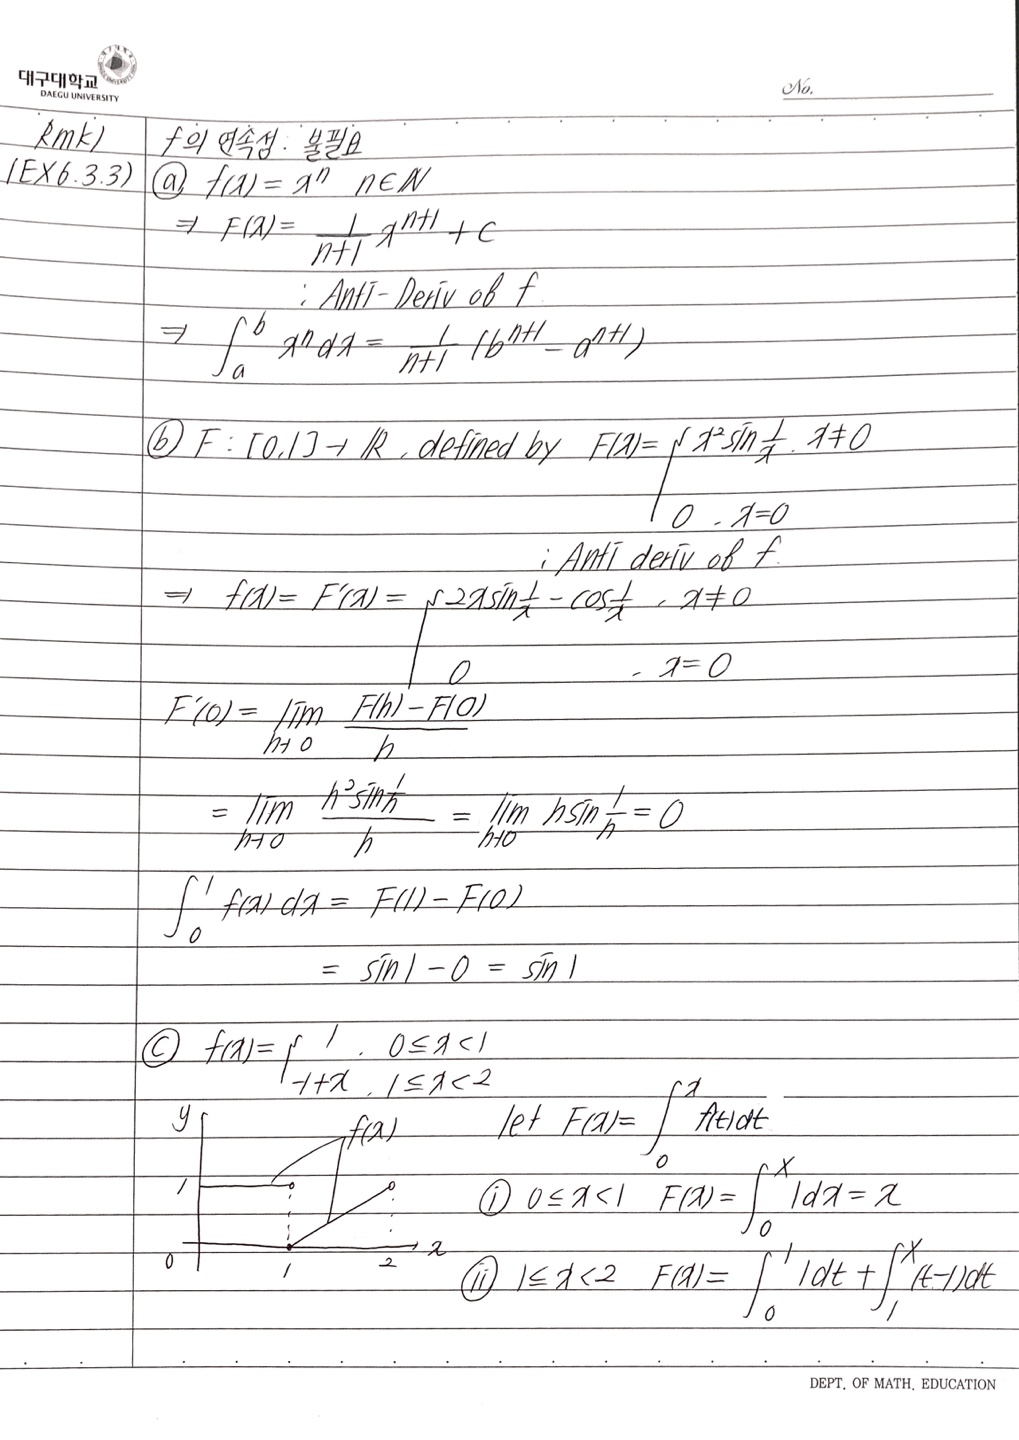 대구대학교
DAEGU UNIVERSITY
No.
Rmk)
f의 연속성 : 불필요
(EX6.3.3) ⓐ f(x) = xⁿ n∈ℕ
⇒ F(x) = 1/(n+1) xⁿ⁺¹ + C
: Anti-Deriv of f
⇒ ∫ₐᵇ xⁿ dx = 1/(n+1) (bⁿ⁺¹ - aⁿ⁺¹)
ⓑ F : [0,1] → ℝ, defined by F(x) = { x² sin 1/x, x≠0
0, x=0
: Anti deriv of f
⇒ f(x) = F'(x) = { 2x sin 1/x - cos 1/x, x≠0
0, x=0
F'(0) = lim h→0 (F(h) - F(0))/h
= lim h→0 (h² sin 1/h)/h = lim h→0 h sin 1/h = 0
∫₀¹ f(x) dx = F(1) - F(0)
= sin1 - 0 = sin1
ⓒ f(x) = { 1, 0≤x<1
-1+x, 1≤x<2
y
f(x)
1
0
1
2
x
let F(x) = ∫₀ˣ f(t)dt
ⓘ 0≤x<1 F(x) = ∫₀ˣ 1dx = x
ⅱ 1≤x<2 F(x) = ∫₀¹ 1dt + ∫₁ˣ (t-1)dt
DEPT. OF MATH. EDUCATION